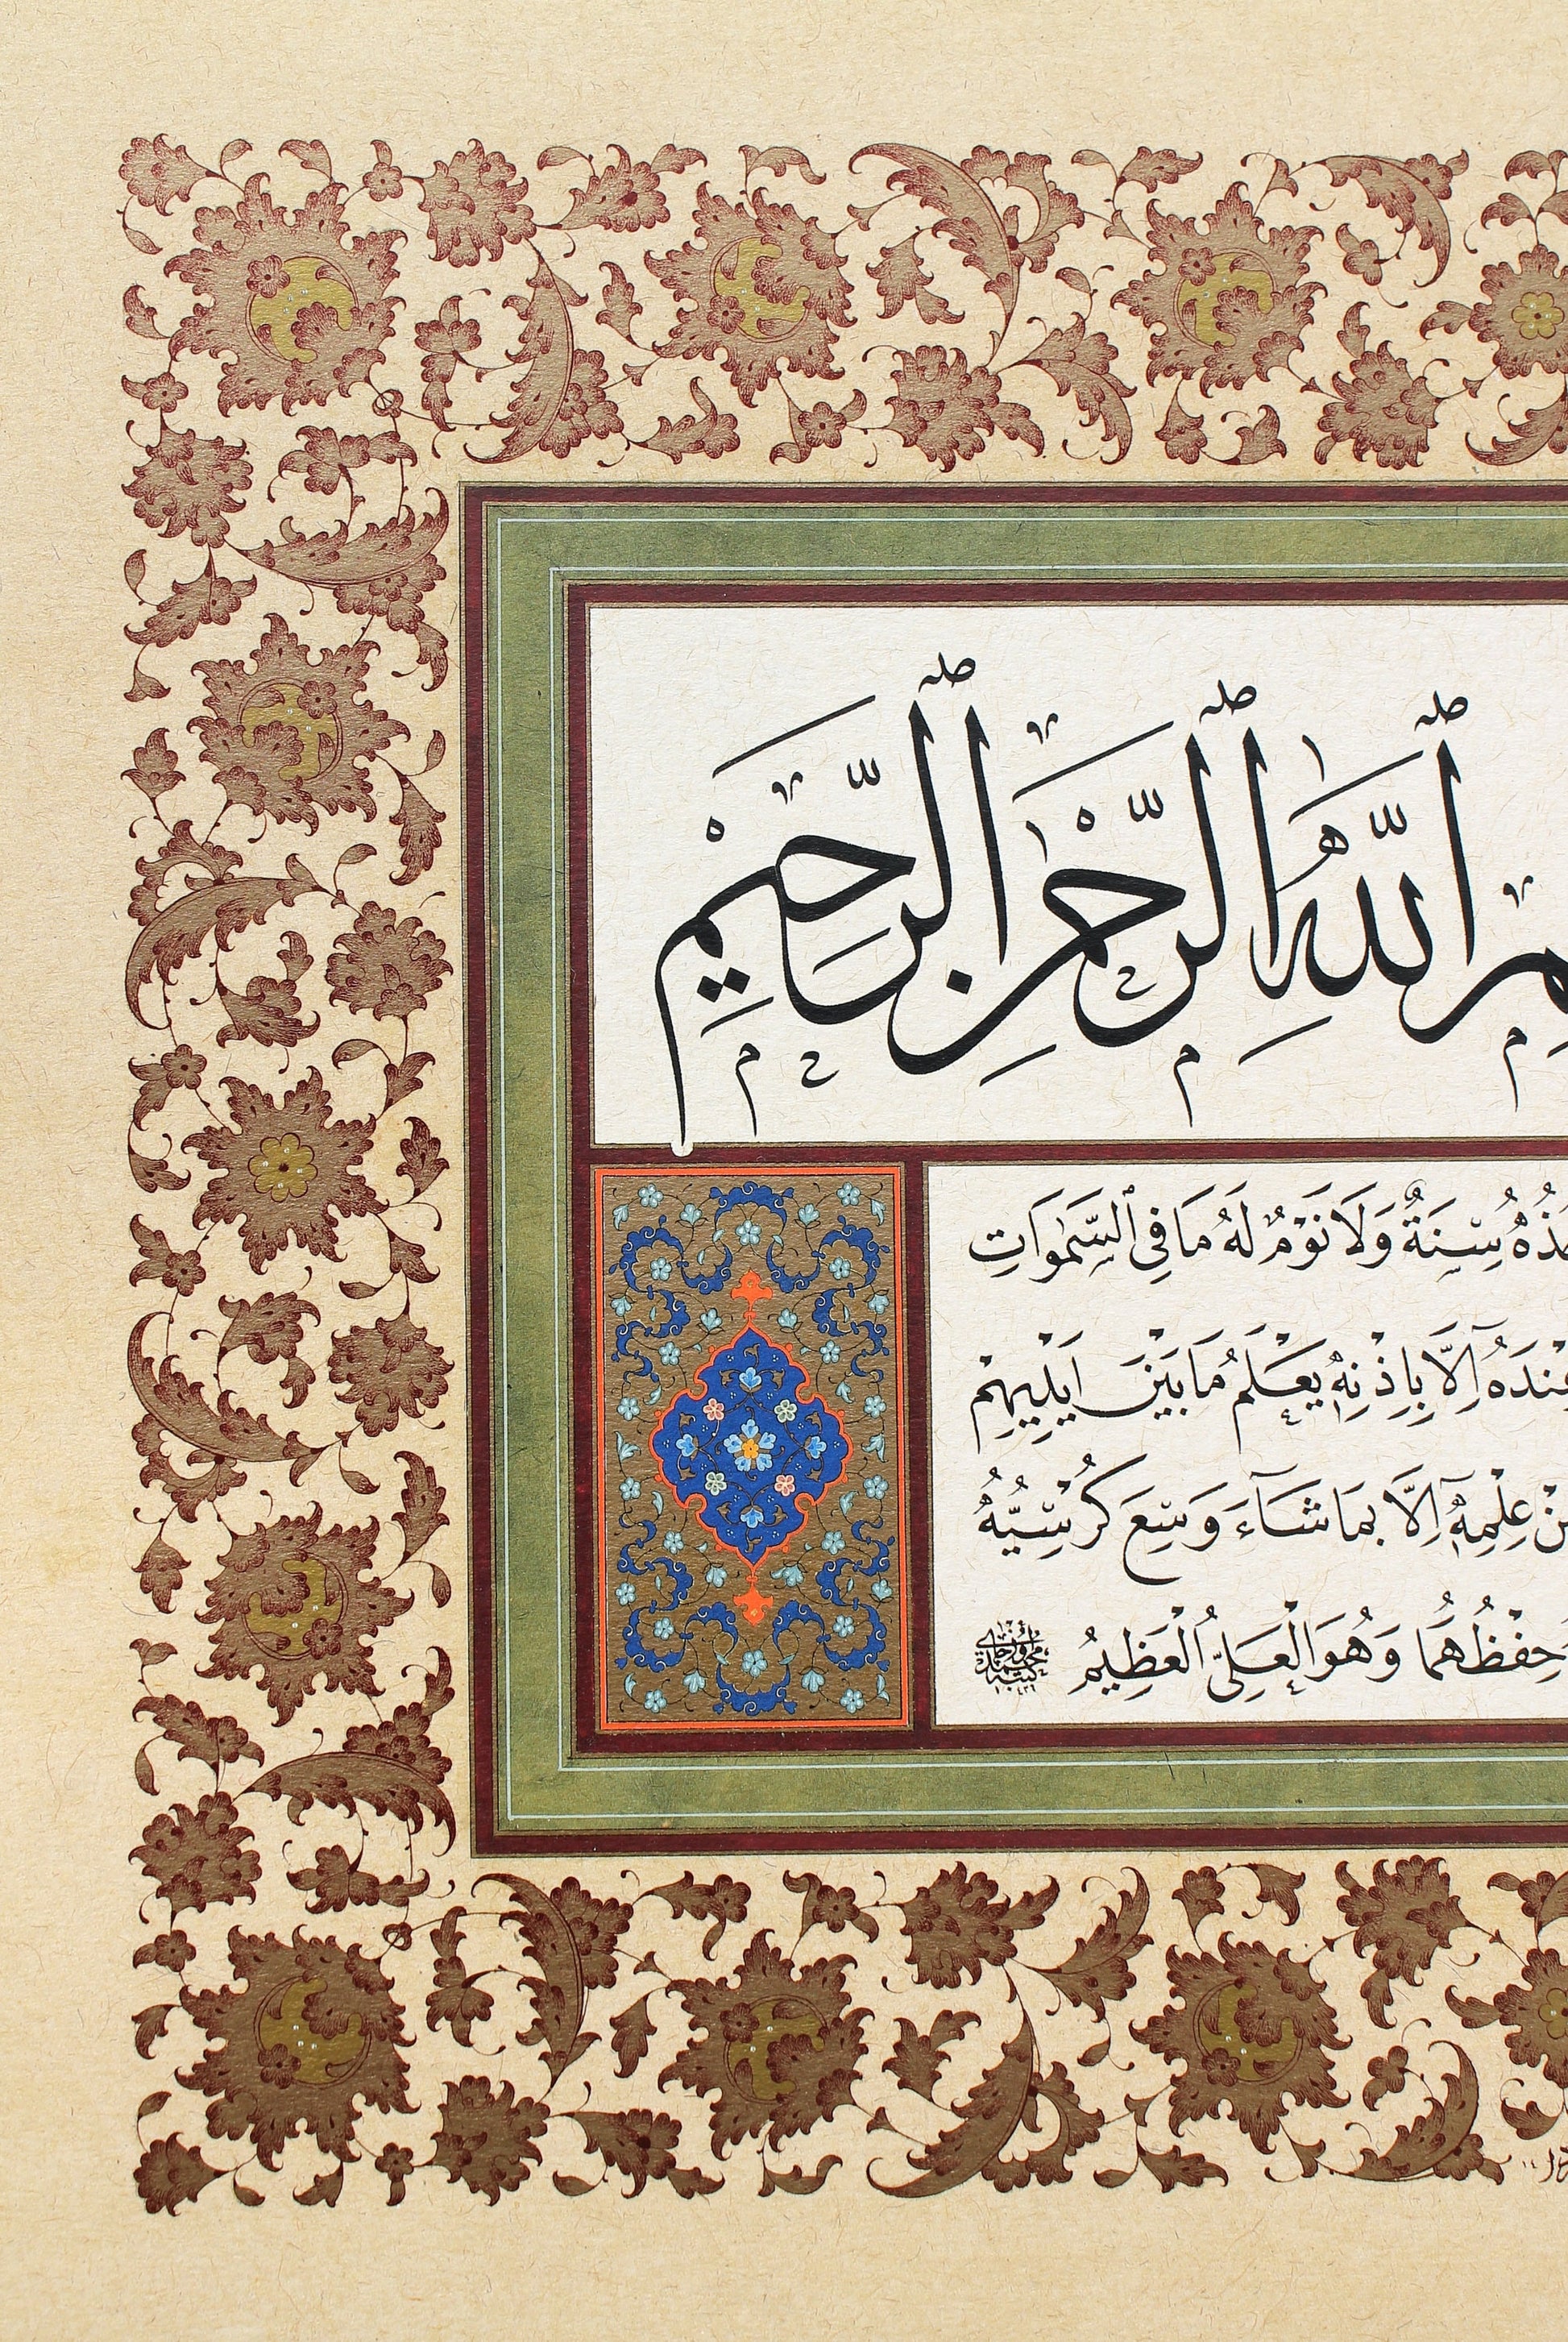 ٱللَّهِ ٱلرَّحْمٰنِ ٱلرَّحِيْمِ
سِنَةٌ وَلَا نَوْمٌ لَهُ مَا فِي ٱلسَّمٰوَاتِ
اِلَّا بِاِذْنِهٖ يَعْلَمُ مَا بَيْنَ اَيْدِيهِمْ
عِلْمِهٖٓ اِلَّا بِمَا شَآءَ وَسِعَ كُرْسِيُّهُ
حِفْظُهُمَا وَهُوَ الْعَلِيُّ الْعَظِيمُ